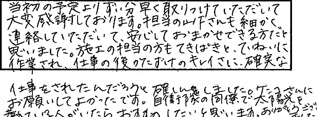 当初の予定よりずい分早く取りつけていただいて
大変感謝しております。担当の山下さんも細かく、
連絡していただいて、安心しておまかせできる方だと
思いました。施工の担当の方もてきぱきと、ていねいに
作業され、仕事の後かたずけのキレイさに、確実な
仕事をされたんだなァと確しん致しました。ケンコさんに
お願いしてよかったです。自衛隊の関係で太陽光を
いらおすすめしたいと思います。